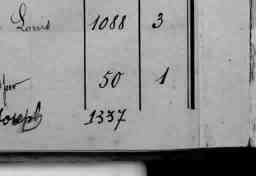 Louis 1088 3
50 1
Joseph 1337